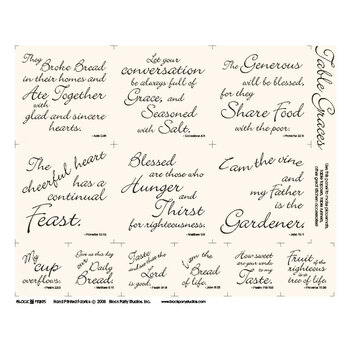 They Broke Bread
in their homes and
Ate Together
with
glad and sincere
hearts.
- Acts 2:46
Let your
conversation
be always full of
Grace, and
Seasoned
with Salt.
- Colossians 4:6
The Generous
will be blessed,
for they
Share Food
with the poor.
- Proverbs 22:9
Table Graces
The
cheerful heart
has a
continual
Feast.
- Proverbs 15:15
Blessed
are those who
Hunger
and
Thirst
for righteousness.
- Matthew 5:6
I am the vine
and
my Father
is the
Gardener.
My
cup
overflows.
- Psalm 23:5
Give us this day
our
Daily
Bread.
- Matthew 6:11
Taste
and see that
the
Lord
is good.
I am
the
Bread
of life.
How sweet
are your words
to my
Taste.
Fruit of
the
righteous
is a
tree of life.
Hand Printed Fabrics © 2008 Block Party Studios, Inc.
www.blockpartystudios.com